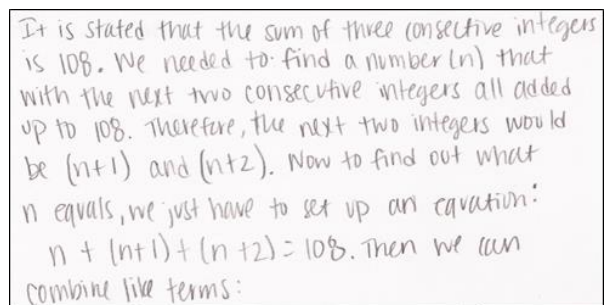 It is stated that the sum of three consective integers
is 108. We needed to find a number (n) that
with the next two consecutive integers all added
up to 108. Therefore, the next two integers would
be (n+1) and (n+2). Now to find out what
n equals, we just have to set up an equation:
n + (n+1) + (n+2) = 108. Then we can
combine like terms: